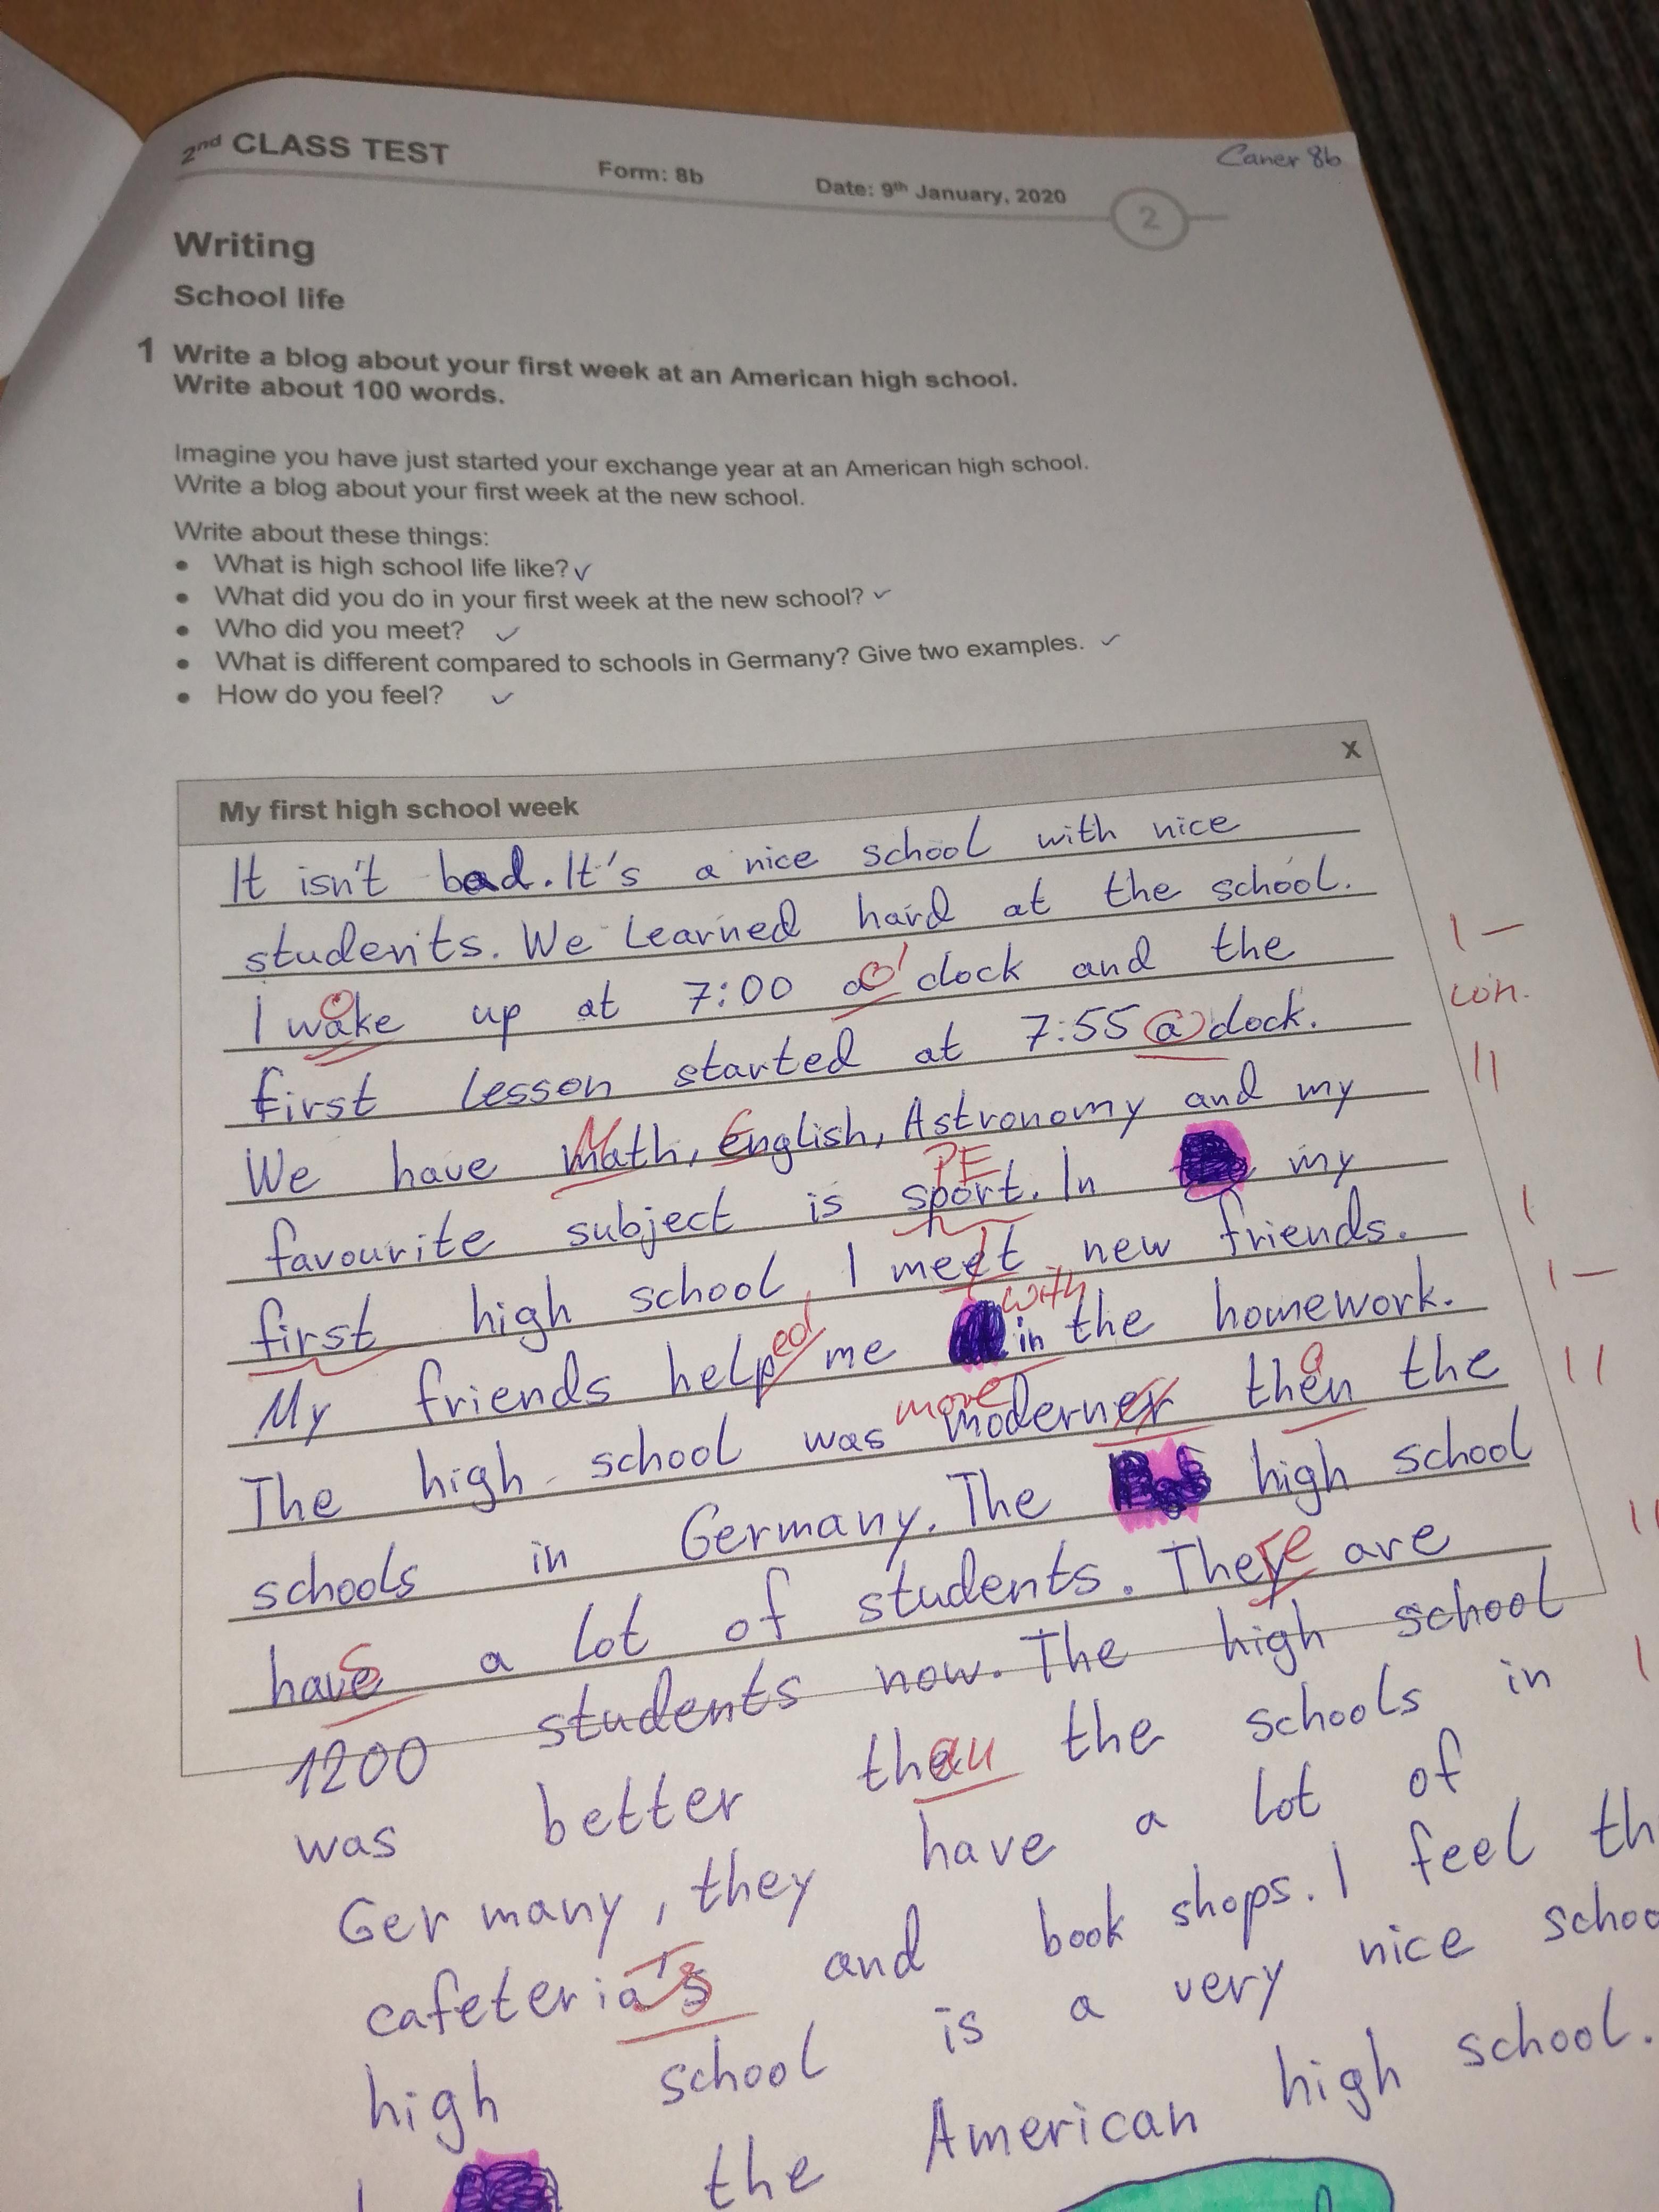 2nd CLASS TEST Form: 8b Date: 9th January, 2020 2 Caner 8b
Writing
School life
1 Write a blog about your first week at an American high school.
Write about 100 words.
Imagine you have just started your exchange year at an American high school.
Write a blog about your first week at the new school.
Write about these things:
• What is high school life like? ✓
• What did you do in your first week at the new school? ✓
• Who did you meet? ✓
• What is different compared to schools in Germany? Give two examples. ✓
• How do you feel? ✓
X
My first high school week
It isn't bad. It's a nice school with nice
students. We learned hard at the school.
I –
o o'
I wake up at 7:00 clock and the
con.
first lesson started at 7:55 a clock.
II
M E
We have math, english, Astronomy and my
PE
favourite subject is sport. In my
I
first high school I meet new friends.
I –
ed with
My friends help me in the homework.
more a
The high school was moderner then the
II
schools in Germany. The high school
s re
have a lot of students. They are
II
1200 students now. The high school
an
was better then the schools in
I
Germany, they have a lot of
cafeteria's and book shops. I feel
high school is a very nice
the American high school.